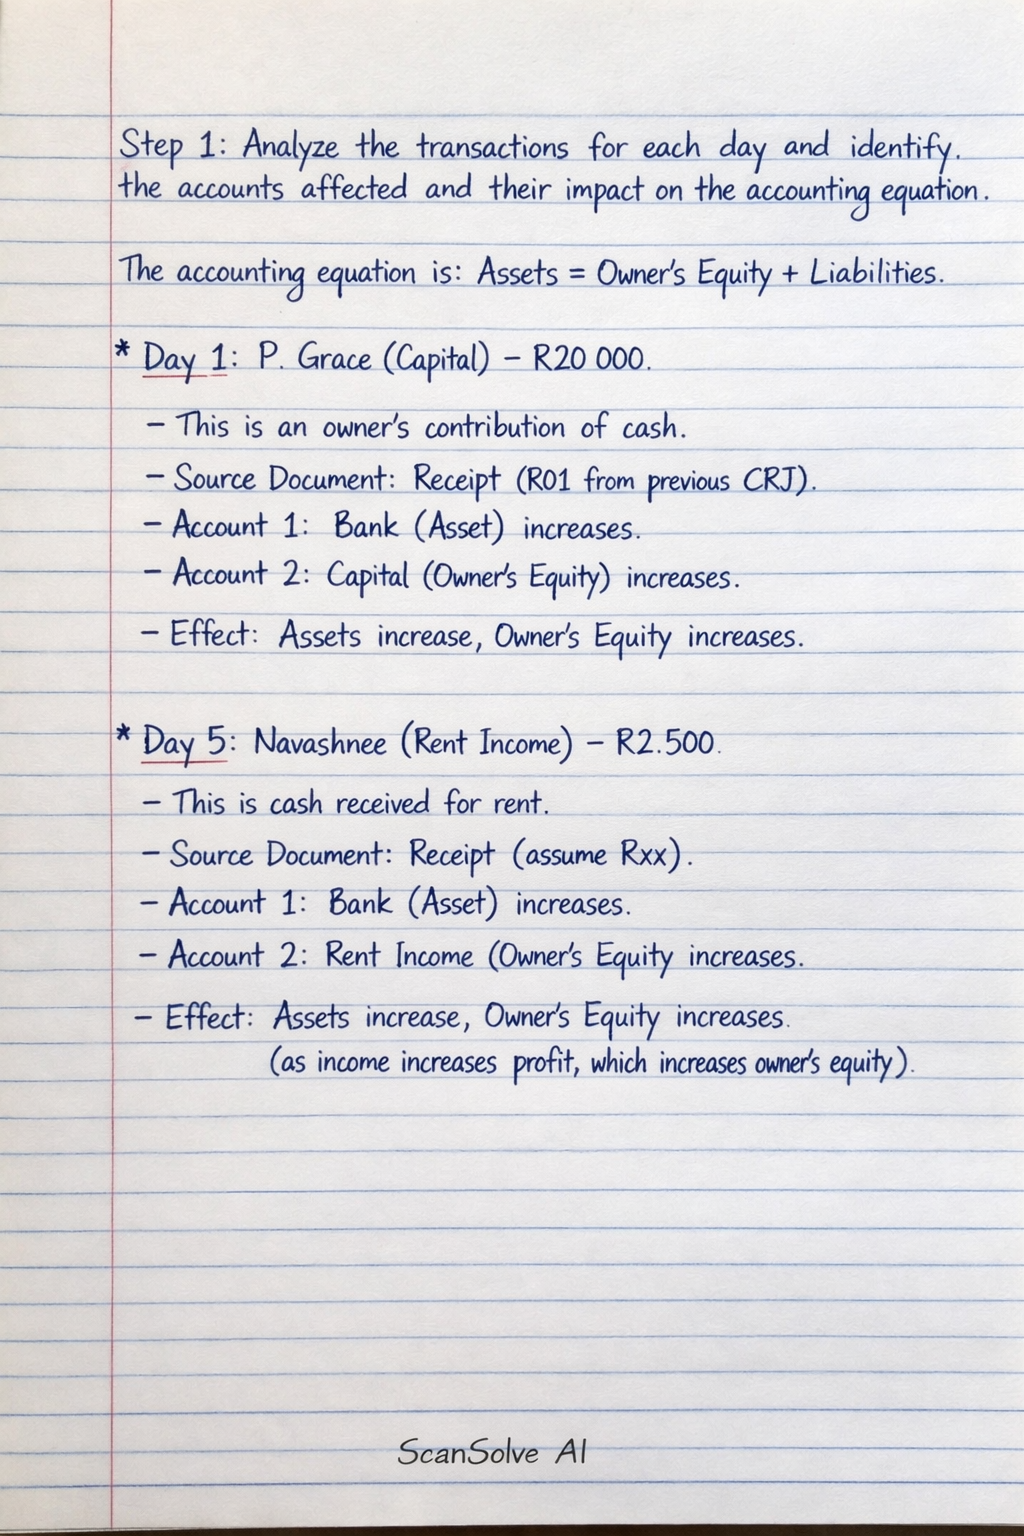 Step 1: Analyze the transactions for each day and identify.
the accounts affected and their impact on the accounting equation.
The accounting equation is: Assets = Owner's Equity + Liabilities.
* Day 1: P. Grace (Capital) – R20 000.
– This is an owner's contribution of cash.
– Source Document: Receipt (R01 from previous CRJ).
– Account 1: Bank (Asset) increases.
– Account 2: Capital (Owner's Equity) increases.
– Effect: Assets increase, Owner's Equity increases.
* Day 5: Navashnee (Rent Income) – R2.500.
– This is cash received for rent.
– Source Document: Receipt (assume Rxx).
– Account 1: Bank (Asset) increases.
– Account 2: Rent Income (Owner's Equity increases.
– Effect: Assets increase, Owner's Equity increases.
(as income increases profit, which increases owner's equity).
ScanSolve AI